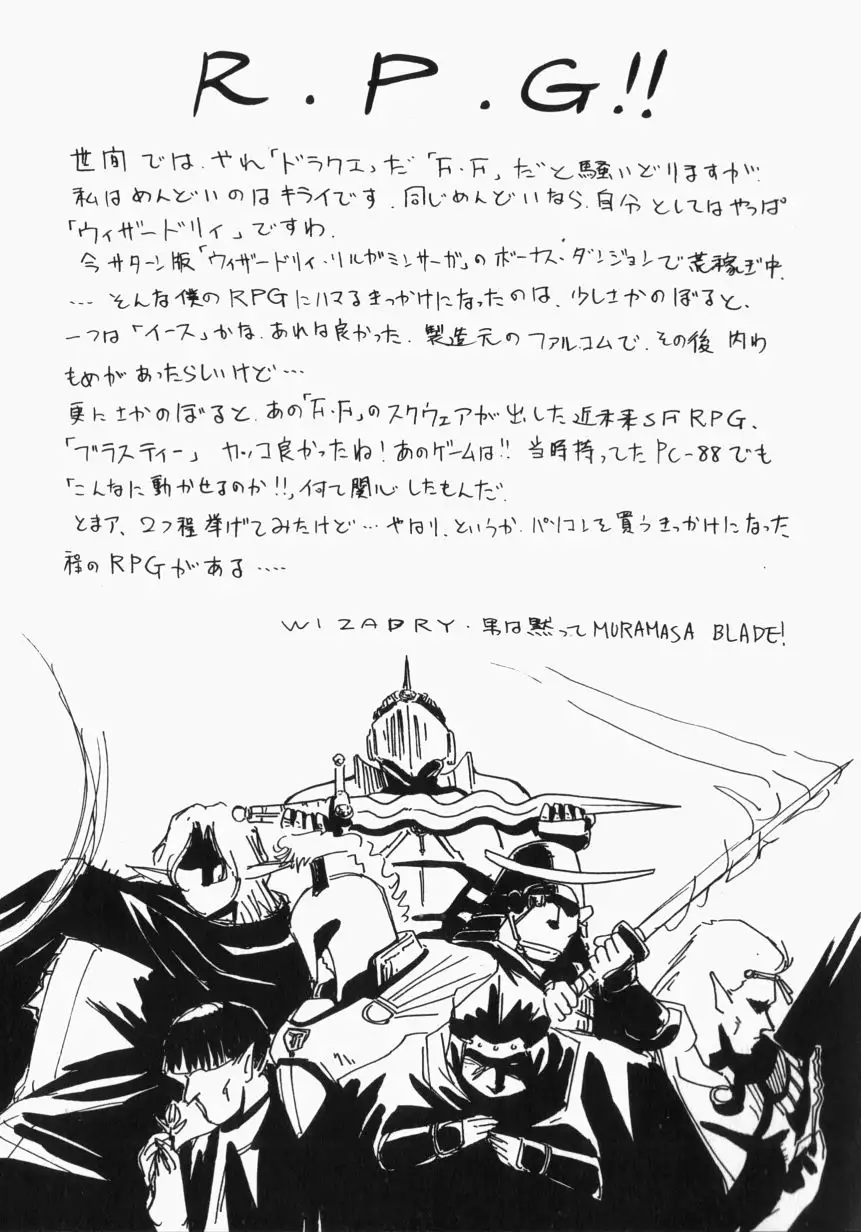 R.P.G!!
世間では、やれ「ドラクエ」だ「F・F」だと騒いどりますが、
私はめんどいのはキライです。同じめんどいなら、自分としてはやっぱ
「ウィザードリィ」ですわ。
今サターン版「ウィザードリィ・リルガミンサーガ」のボーナス・ダンジョンで荒稼ぎ中。
…そんな僕のRPGにハマるきっかけになったのは、少しさかのぼると、
一つは「イース」かな。あれは良かった。製造元のファルコムで、その後内わ
もめがあったらしいけど…
更にさかのぼると、あの「F・F」のスクウェアが出した近未来SFRPG、
「ブラスティー」カッコ良かったね!あのゲームは!!当時持ってたPC-88でも
「こんなに動かせるのか!!」何て関心したもんだ。
とまァ、2つ程挙げてみたけど…やはり、というか、パソコンを買うきっかけになった
程のRPGがある‥‥
WIZADRY・男は黙ってMURAMASA BLADE!